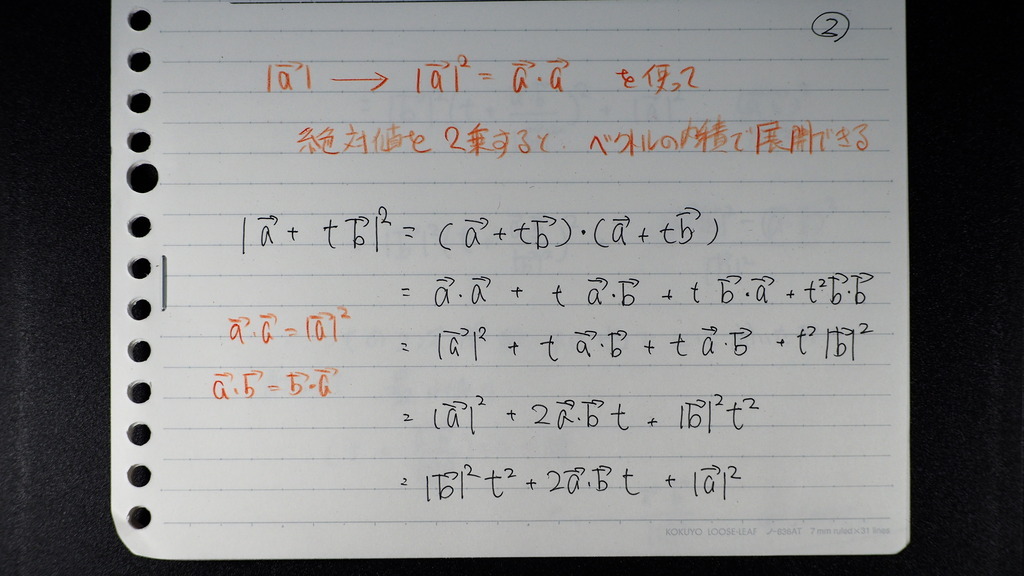 ②
|a⃗| → |a⃗|² = a⃗・a⃗ を使って
絶対値を2乗すると、ベクトルの内積で展開できる
|a⃗ + t b⃗|² = (a⃗ + t b⃗)・(a⃗ + t b⃗)
= a⃗・a⃗ + t a⃗・b⃗ + t b⃗・a⃗ + t² b⃗・b⃗
a⃗・a⃗ = |a⃗|²
= |a⃗|² + t a⃗・b⃗ + t a⃗・b⃗ + t² |b⃗|²
a⃗・b⃗ = b⃗・a⃗
= |a⃗|² + 2a⃗・b⃗ t + |b⃗|² t²
= |b⃗|² t² + 2a⃗・b⃗ t + |a⃗|²
KOKUYO LOOSE-LEAF ノ-836AT 7 mm ruled×31 lines